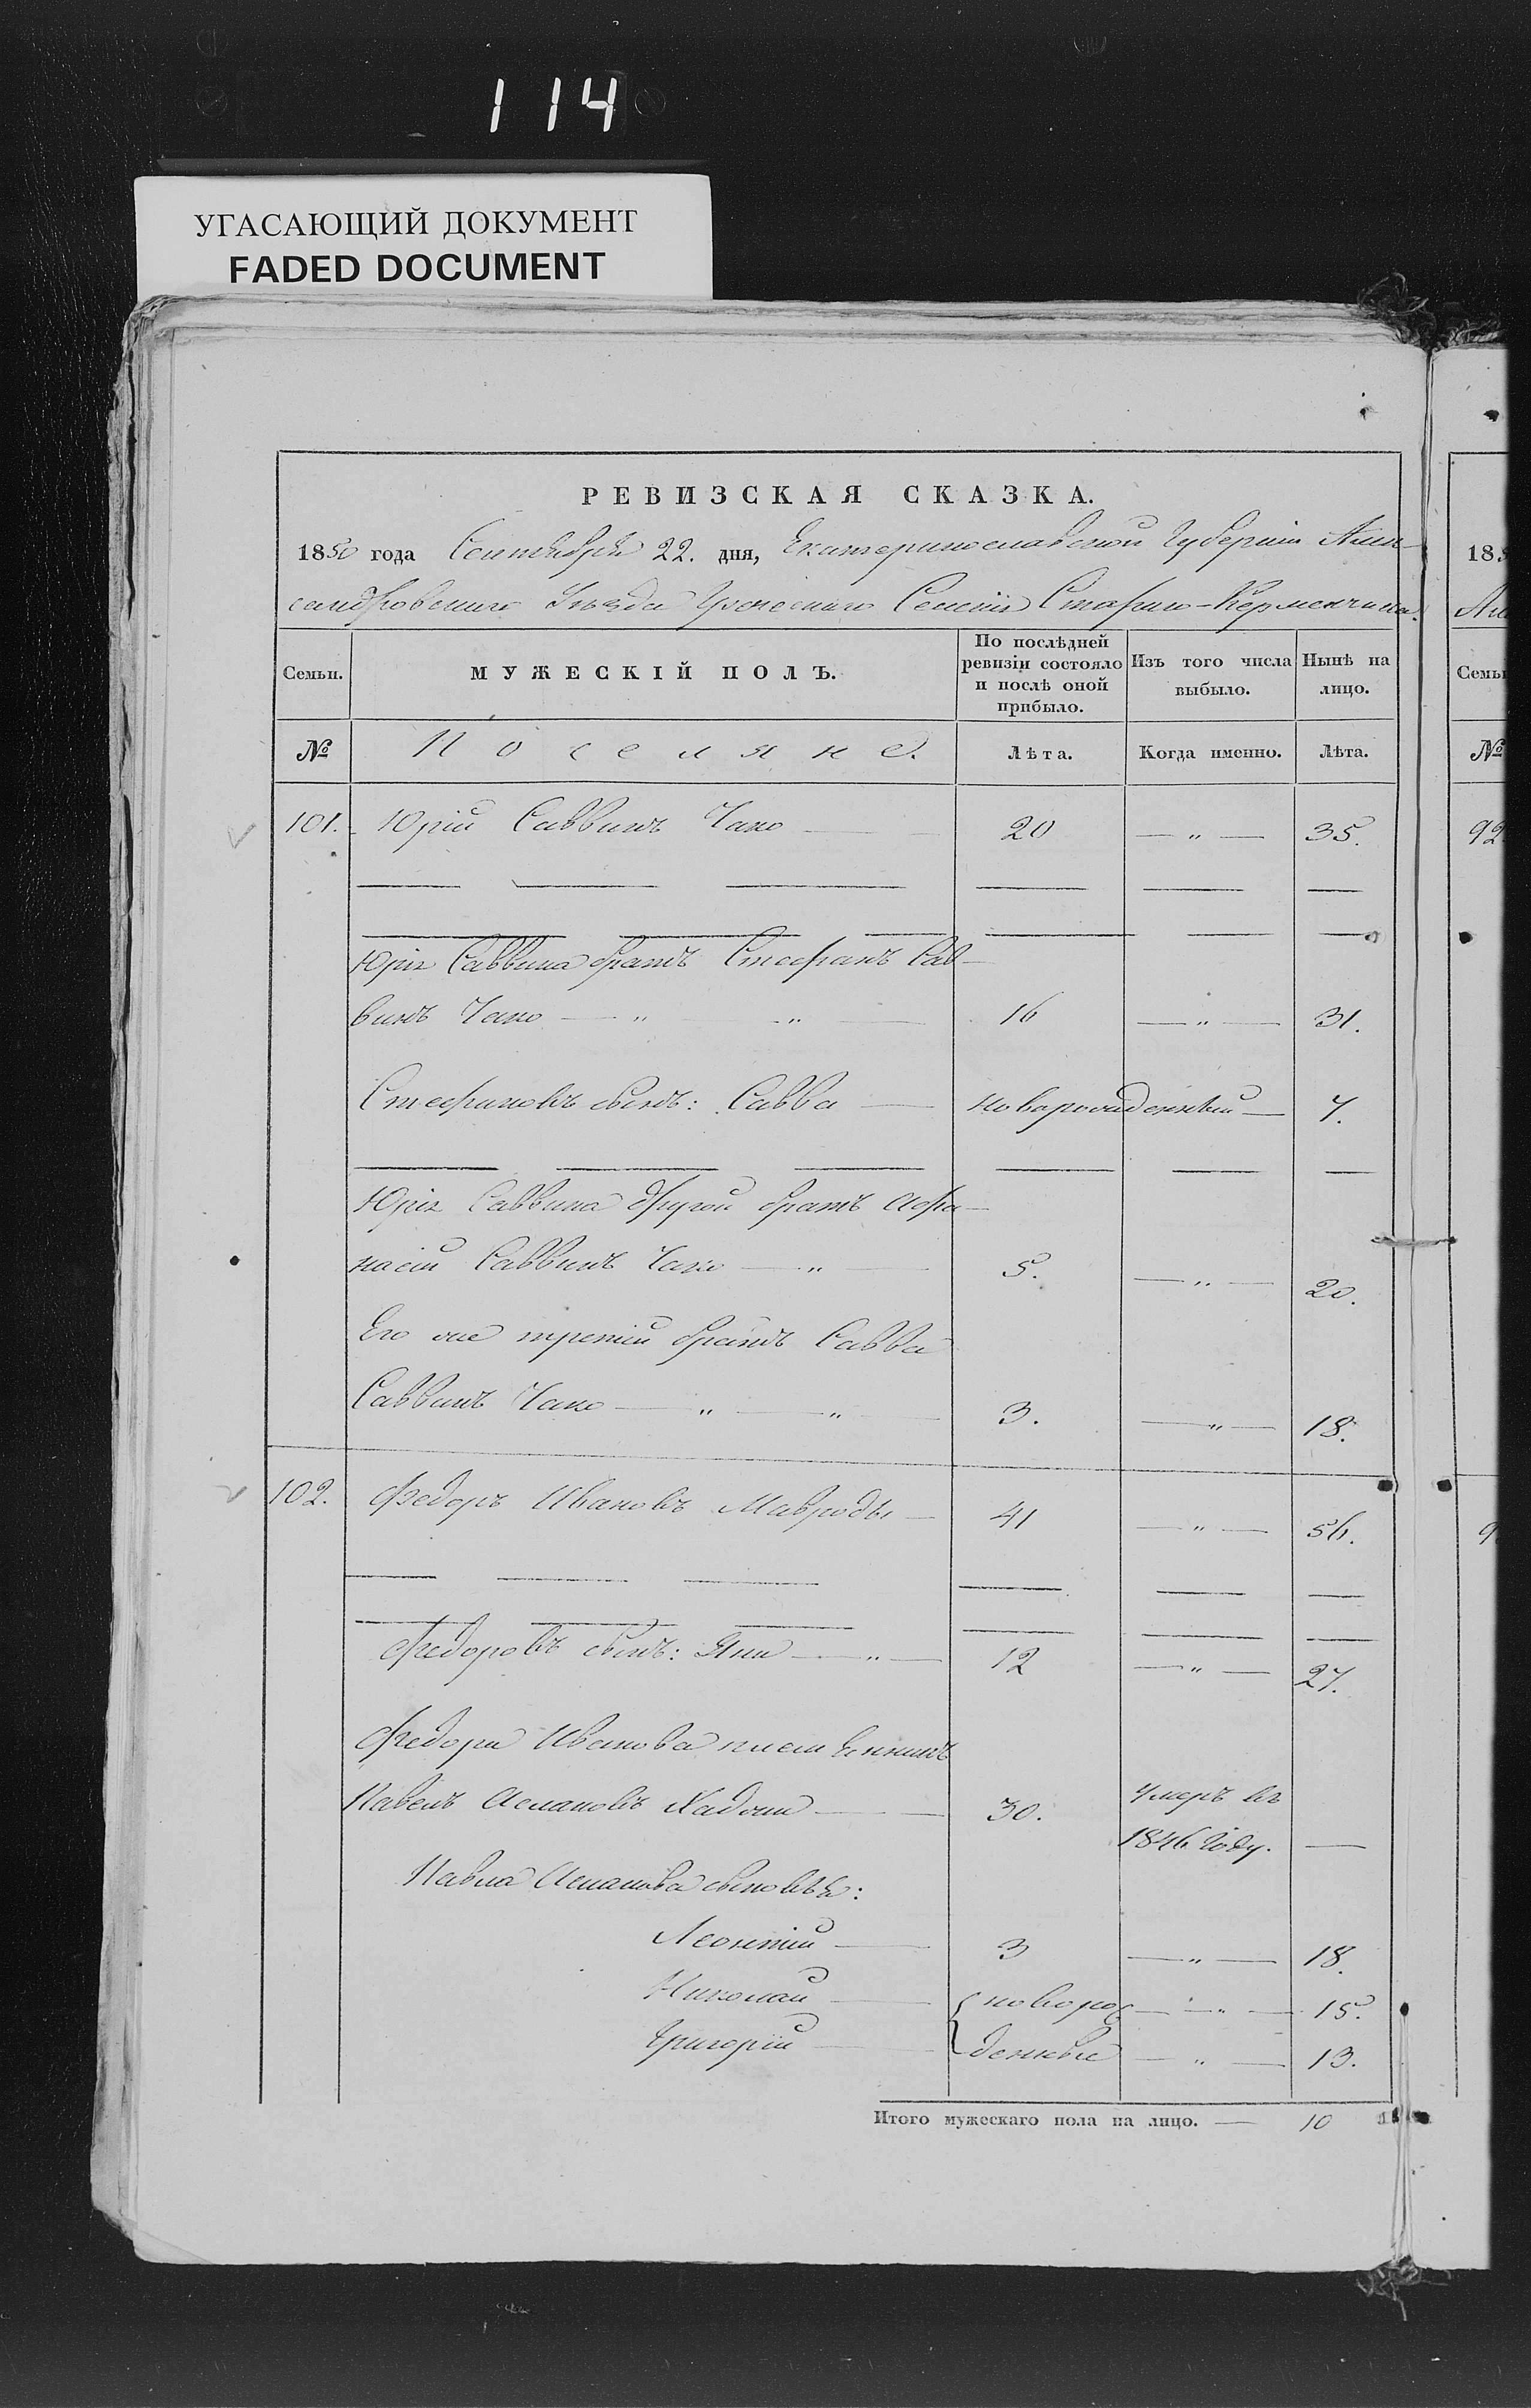 114
УГАСАЮЩИЙ ДОКУМЕНТ
FADED DOCUMENT
РЕВИЗСКАЯ СКАЗКА.
1850 года Сентября 22. дня, Екатеринославской Губерніи Алек-
сандровскаго Уѣзда Греческаго Селенія Стараго-Керменчика.
Семьи. МУЖЕСКІЙ ПОЛЪ. По послѣдней ревизіи состояло и послѣ оной прибыло. Изъ того числа выбыло. Нынѣ на лицо.
№ Поселяне. Лѣта. Когда именно. Лѣта.
101. Юрій Саввинъ Чако — 20 — „ — 35.
Юрія Саввина братъ Стефанъ Сав-
винъ Чако — „ „ — 16 — „ — 31.
Стефановъ сынъ: Савва — новорожденный — 7.
Юрія Саввина другой братъ Афа-
насій Саввинъ Чако — „ — 5. — „ — 20.
Его же третій братъ Савва
Саввинъ Чако — „ — „ — 3. — „ — 18.
102. Федоръ Ивановъ Мавроды — 41 — „ — 56.
Федоровъ сынъ: Яни — „ — 12 — „ — 27.
Федора Иванова племянникъ
Павелъ Аслановъ Хаджи — 30. Умеръ въ
1846 году. —
Павла Асланова сыновья:
Леонтій — 3 — „ — 18.
Николай — новорож- — „ — 15.
Григорій — денные — „ — 13.
Итого мужескаго пола на лицо. — 10
185
Ал
Семьи
№
92
9